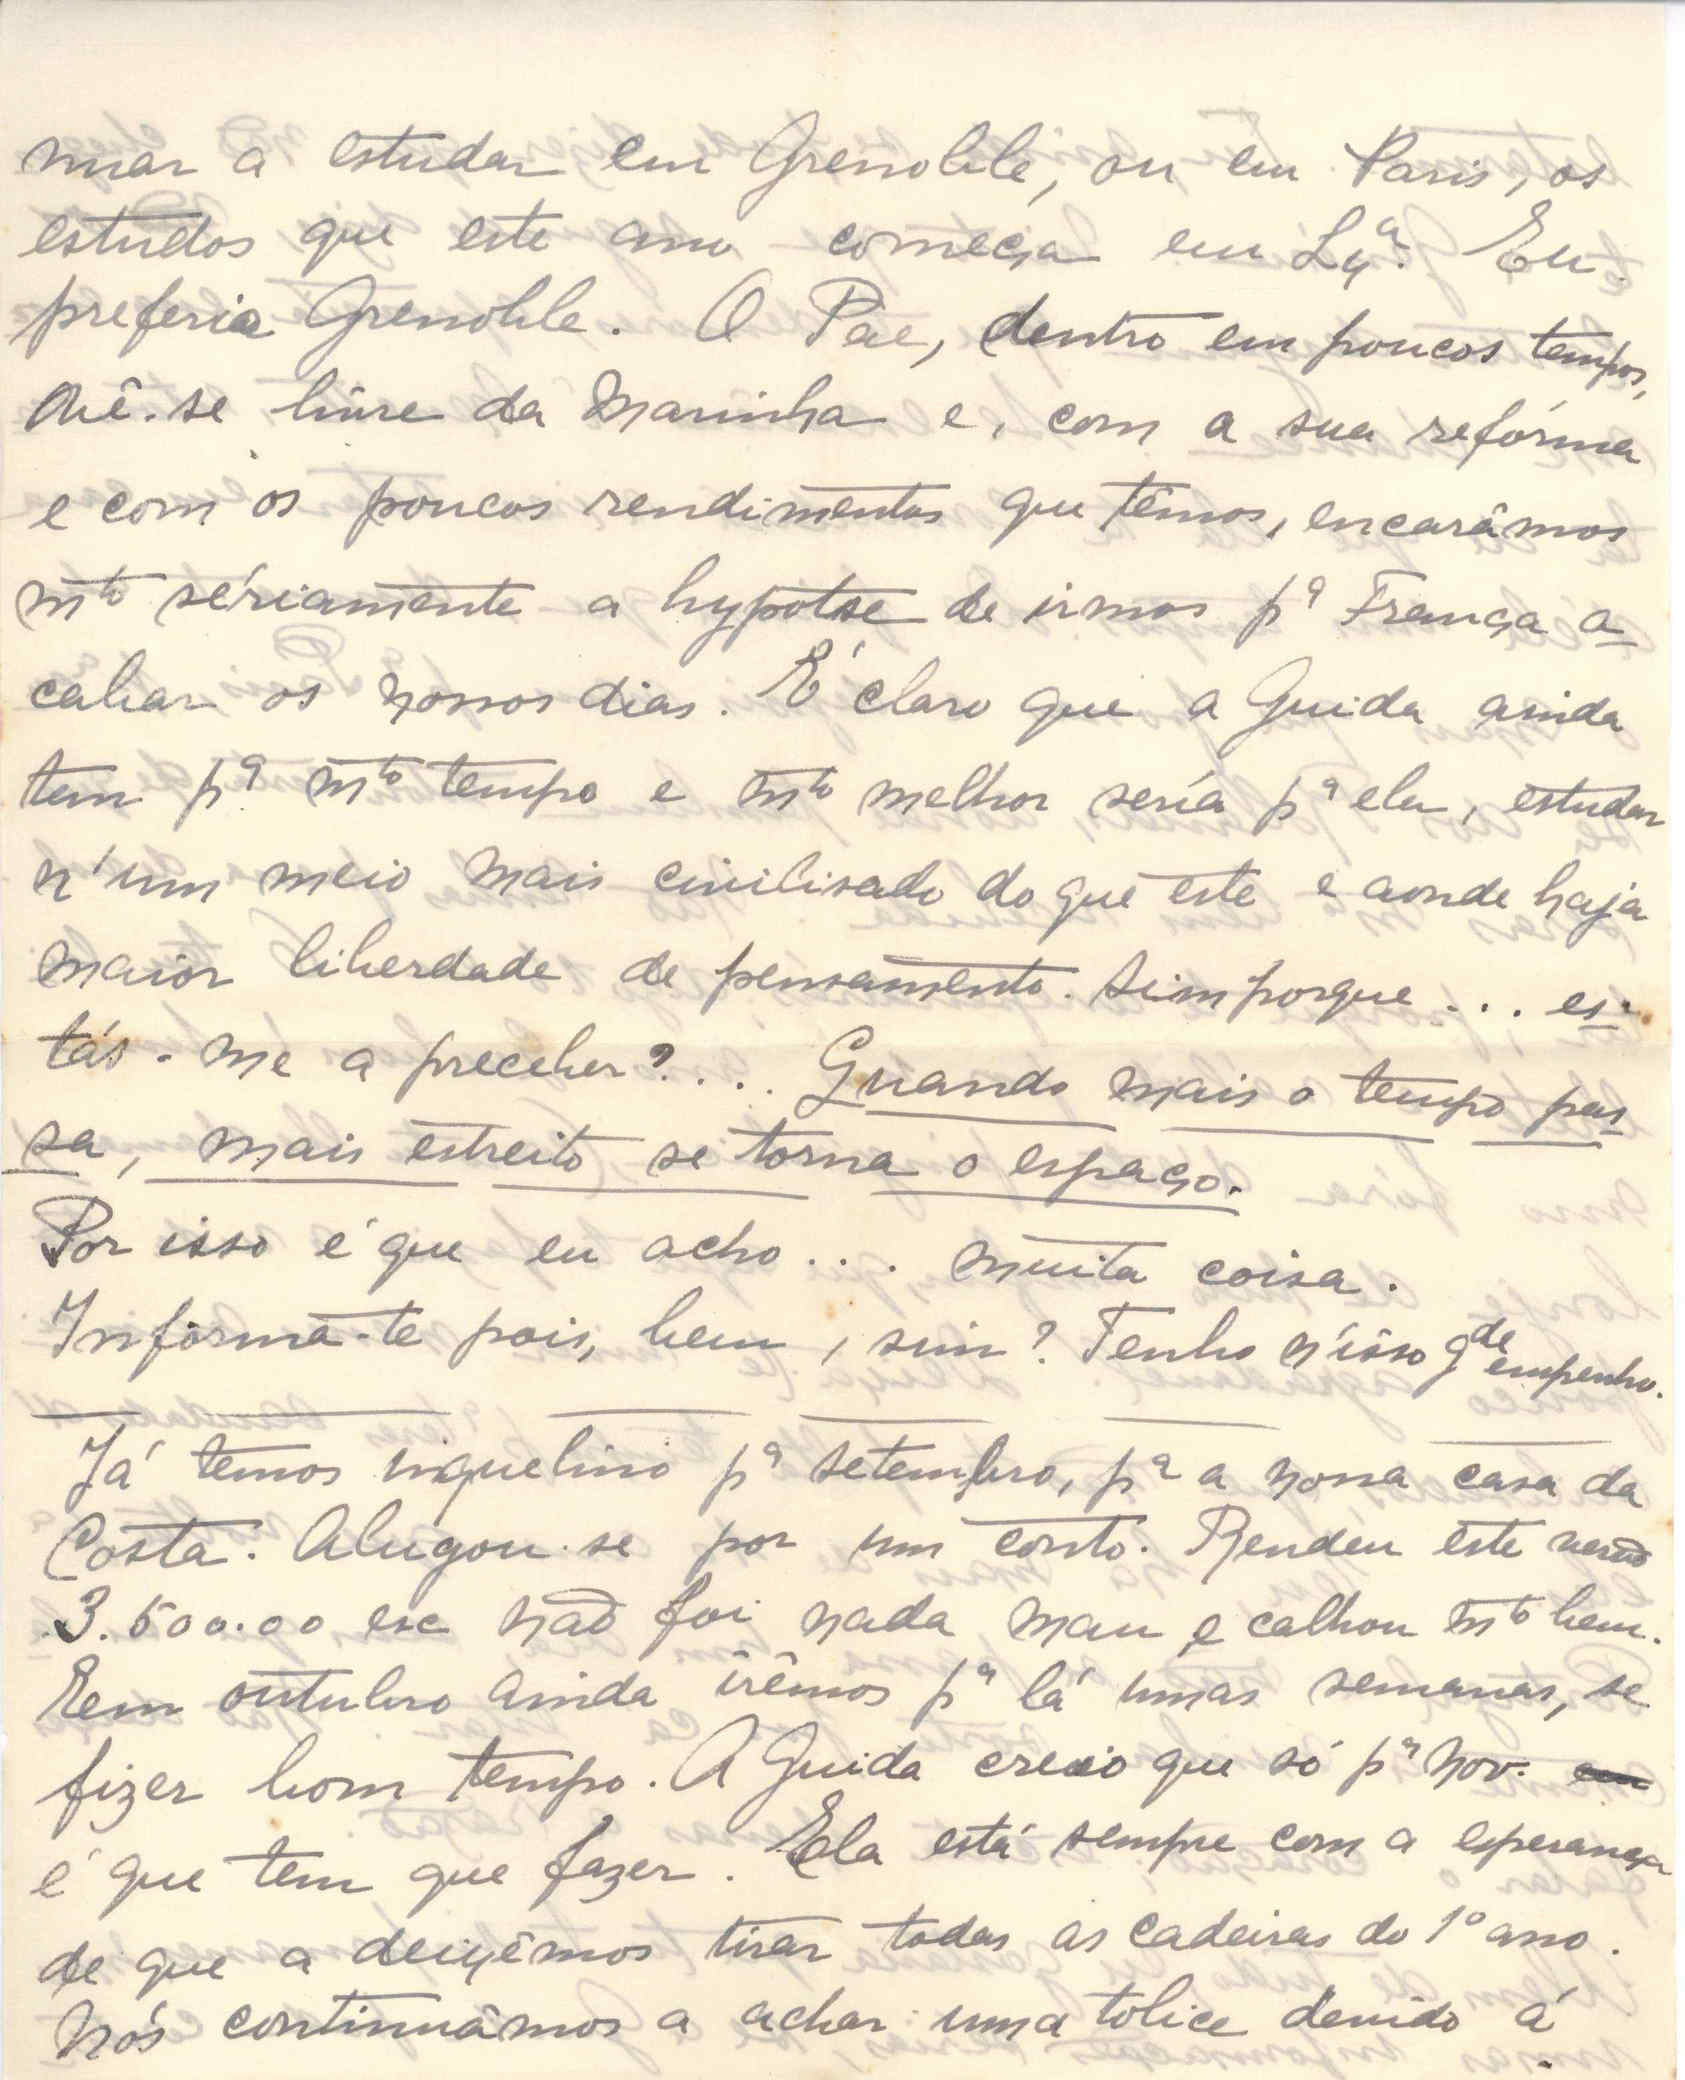 nuar a estudar em Grenoble, ou em Paris, os
estudos que este ano começa em Lxª. Eu
preferia Grenoble. O Pae, dentro em poucos tempos,
vê-se livre da Marinha e, com a sua refórma
e com os poucos rendimentos que têmos, encarâmos
mto sériamente a hypotse de irmos pª França a-
cabar os nossos dias. É claro que a Guida ainda
tem pª mto tempo e mto melhor sería pª ela, estudar
n'um meio mais civilisado do que este e aonde haja
maior liberdade de pensamento. Sim porque ... es-
tás-me a preceber?... Quando mais o tempo pas
sa, mais estreito se torna o espaço.
Por isso é que eu acho ... muita coisa.
Informa-te pois, bem, sim? Tenho n'isso gde empenho.
Já temos inquelino pª setembro, pª a nossa casa da
Costa. Alugou-se por um conto. Rendeu este verão
3.500.00 esc não foi nada mau e calhou mto bem.
Eem outubro ainda irêmos pª lá umas semanas, se
fizer bom tempo. A Guida creio que só pª Nov.
é que tem que fazer. Ela está sempre com a esperança
de que a deixêmos tirar todas as cadeiras do 1º ano.
Nós continuâmos a achar uma tolice devido á